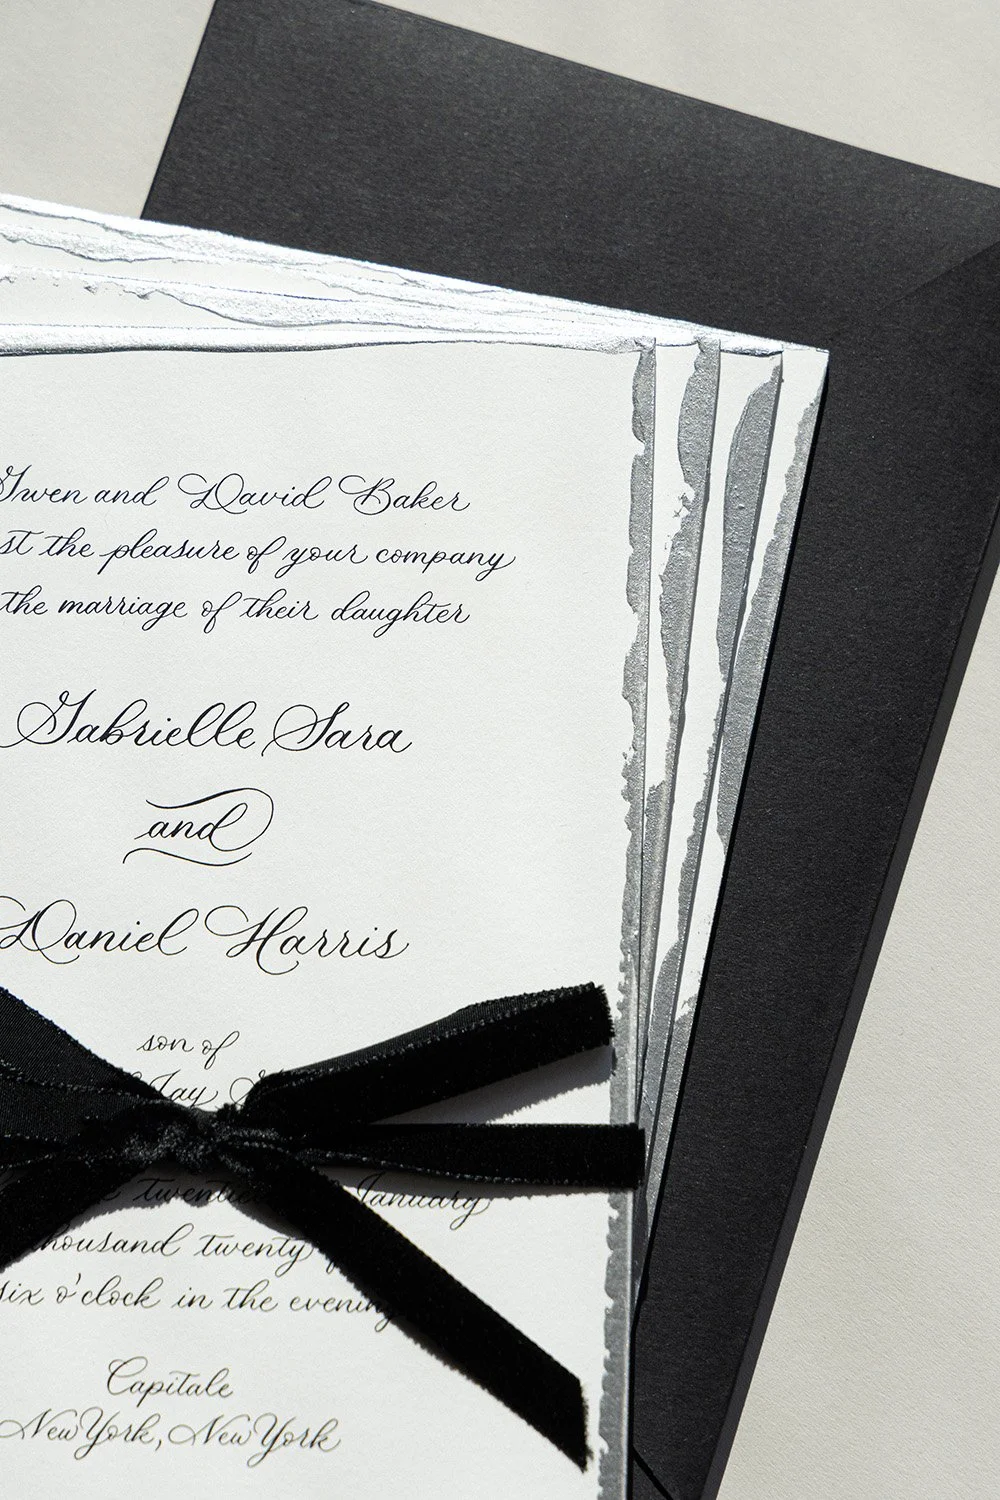 Gwen and David Baker
the pleasure of your company
the marriage of their daughter
Gabrielle Sara
and
Daniel Harris
son of
Jay
January
thousand twenty
six o'clock in the evening
Capitale
New York, New York